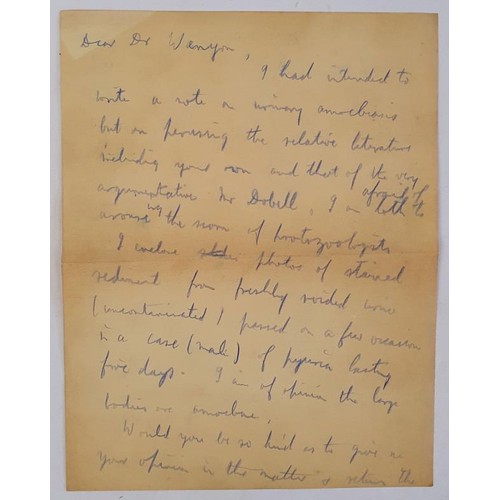 Dear Dr Wenyon,
I had intended to
write a note on urinary amoebiasis
but on perusing the relative literature
including your own and that of the very
argumentative Mr Dobell, I am afraid of
arousing the scorn of protozoologists
I enclose photos of stained
sediment from freshly voided urine
(uncontaminated) passed on a few occasion
in a case (male) of pyuria lasting
five days. I am of opinion the large
bodies are amoebae,
Would you be so kind as to give me
your opinion in the matter & return the